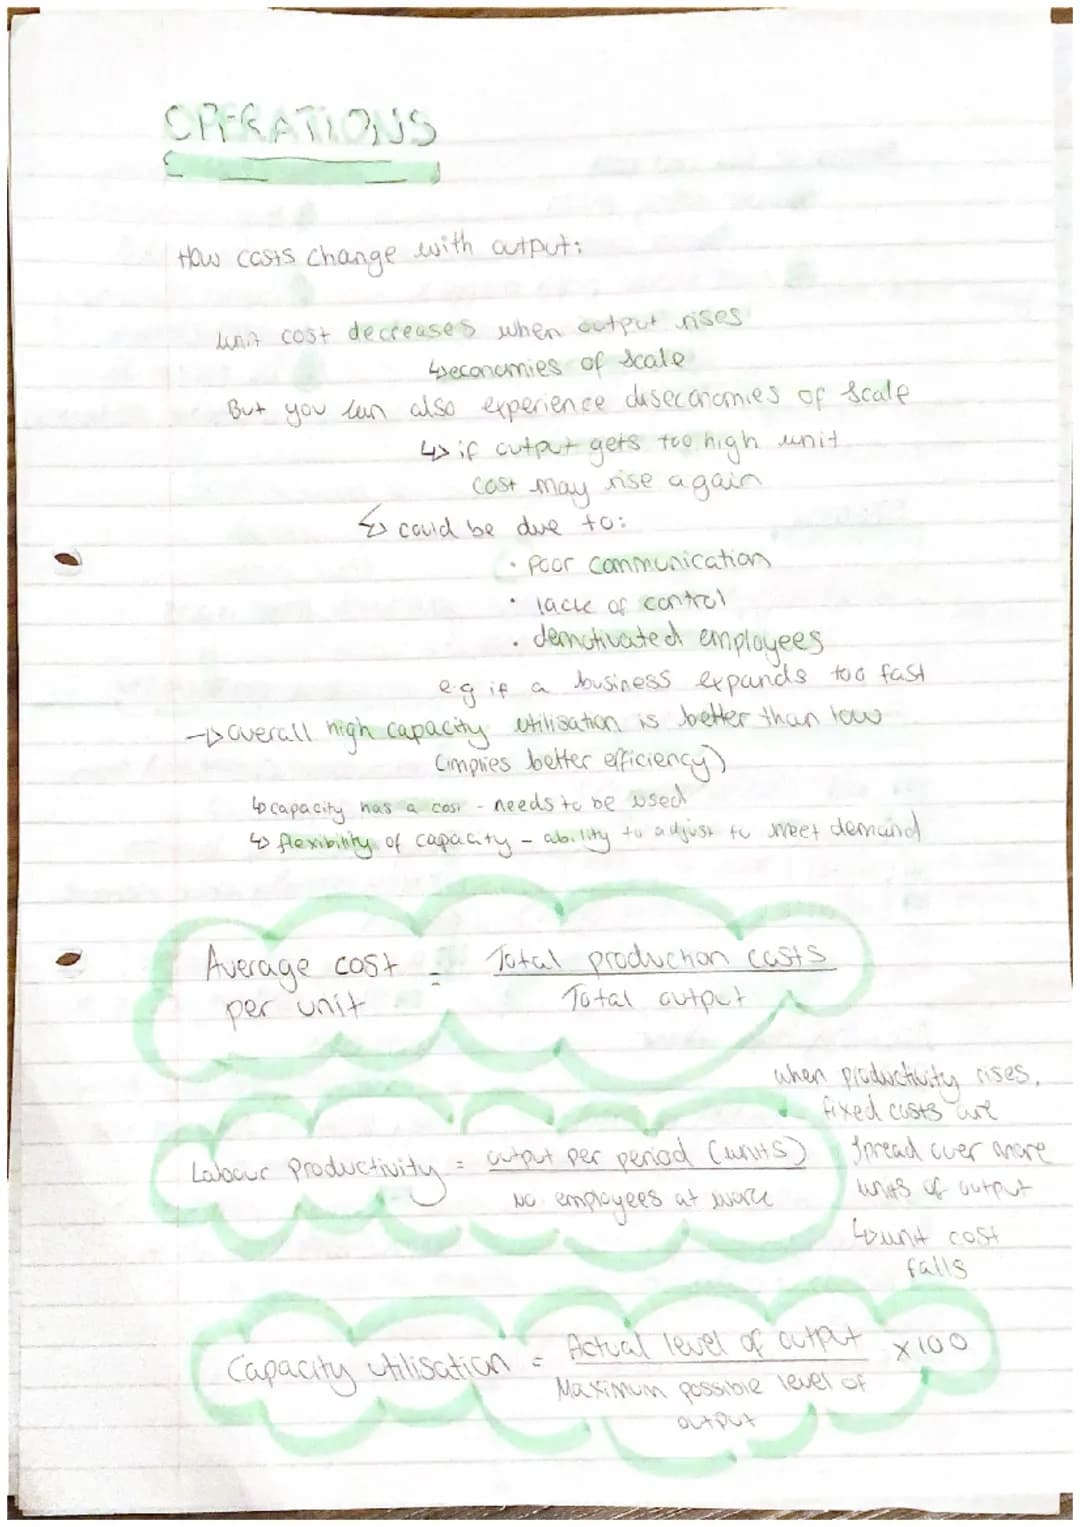 OPERATIONS
How costs change with output:
Unit cost decreases when output rises
↳ economies of scale
But you can also experience diseconomies of scale
↳ if output gets too high unit
cost may rise again
↳ could be due to:
• Poor communication
• lack of control
• demotivated employees
e.g if a business expands too fast
→ overall high capacity utilisation is better than low
(implies better efficiency)
↳ capacity has a cost - needs to be used
↳ flexibility of capacity - ability to adjust to meet demand
Average cost = Total production costs
per unit Total output
when productivity rises,
fixed costs are
spread over more
units of output
↳ unit cost
falls
Labour Productivity = output per period (units)
No employees at work
Capacity utilisation = Actual level of output x100
Maximum possible level of
output